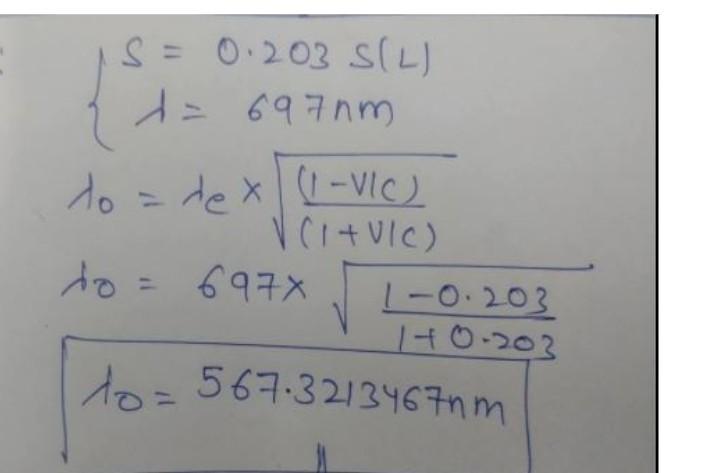 S = 0.203 S(L)
λ = 697nm
λo = λe × √((1-V/c)/(1+V/c))
λo = 697× √(1-0.203/1+0.203)
λo = 567.3213467nm